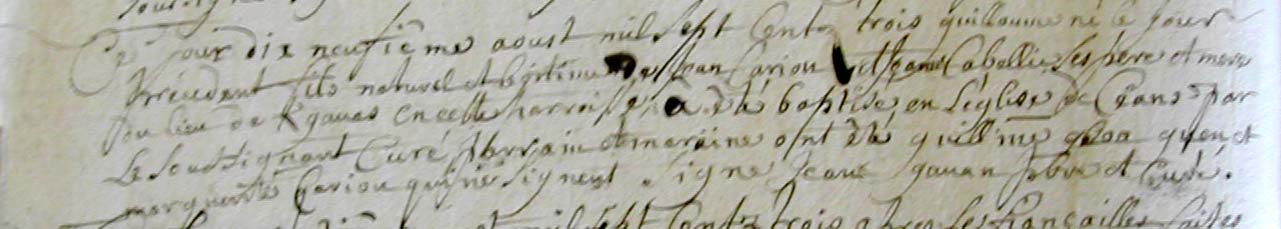 Ce jour dix neufiême aoust mil sept Cent trois guilloume né le jour
précédent fils naturel et légitime de Jean Cariou et Jeanne Cabellic ses père et mere
du lieu de en cette parroisse a été baptisé en L'église de par
Le soussignant Curé parrain et maraine ont été guillme et
marguerite Cariou qui ne signent signé Jean pbre et Curé.
mil sept Cent trois apres les fiançailles faites